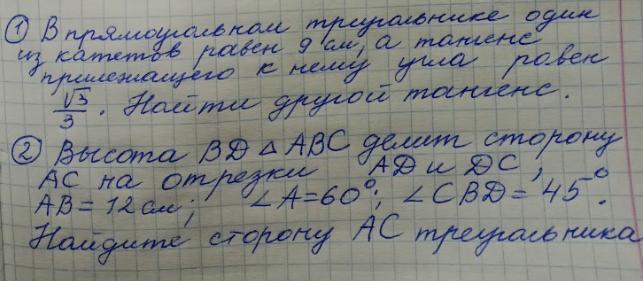 ① В прямоугольном треугольнике один
из катетов равен 9 см, а тангенс
прилежащего к нему угла равен
√3/3. Найти другой тангенс.
② Высота BD △ ABC делит сторону
AC на отрезки AD и DC,
AB = 12 см; ∠A = 60°; ∠CBD = 45°.
Найдите сторону AC треугольника